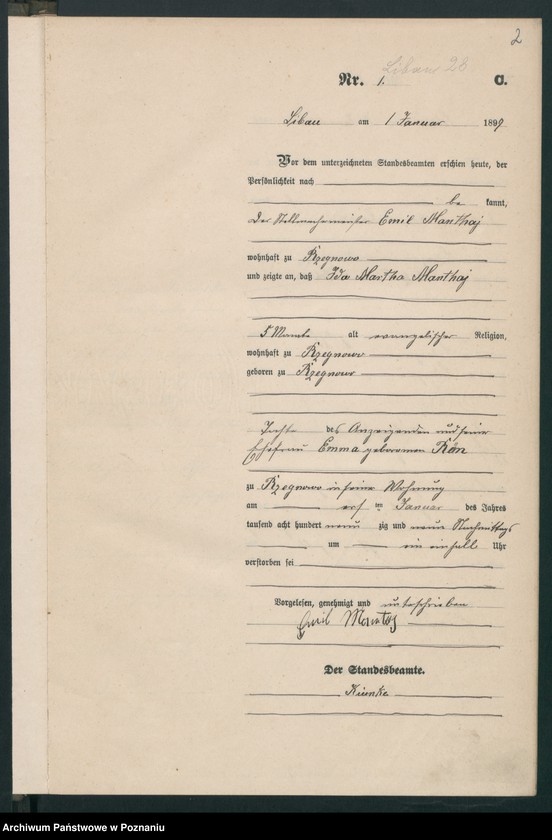 2
Libau 28
Nr. 1. C.
Libau am 1 Januar 1899
Vor dem unterzeichneten Standesbeamten erschien heute, der
Persönlichkeit nach
be kannt,
der Stellmachermeister Emil Manthaj
wohnhaft zu Rzegnowo
und zeigte an, daß Ida Martha Manthaj
5 Monate alt evangelischer Religion,
wohnhaft zu Rzegnowo
geboren zu Rzegnowo
des Anzeigenden und seiner
Ehefrau Emma geborenen Rön
zu Rzegnowo in seiner Wohnung
am ten Januar des Jahres
tausend acht hundert neun zig und neun Nachmittags
um ein einhalb Uhr
verstorben sei
Vorgelesen, genehmigt und unterschrieben
Emil Mantaj
Der Standesbeamte.
Archiwum Państwowe w Poznaniu